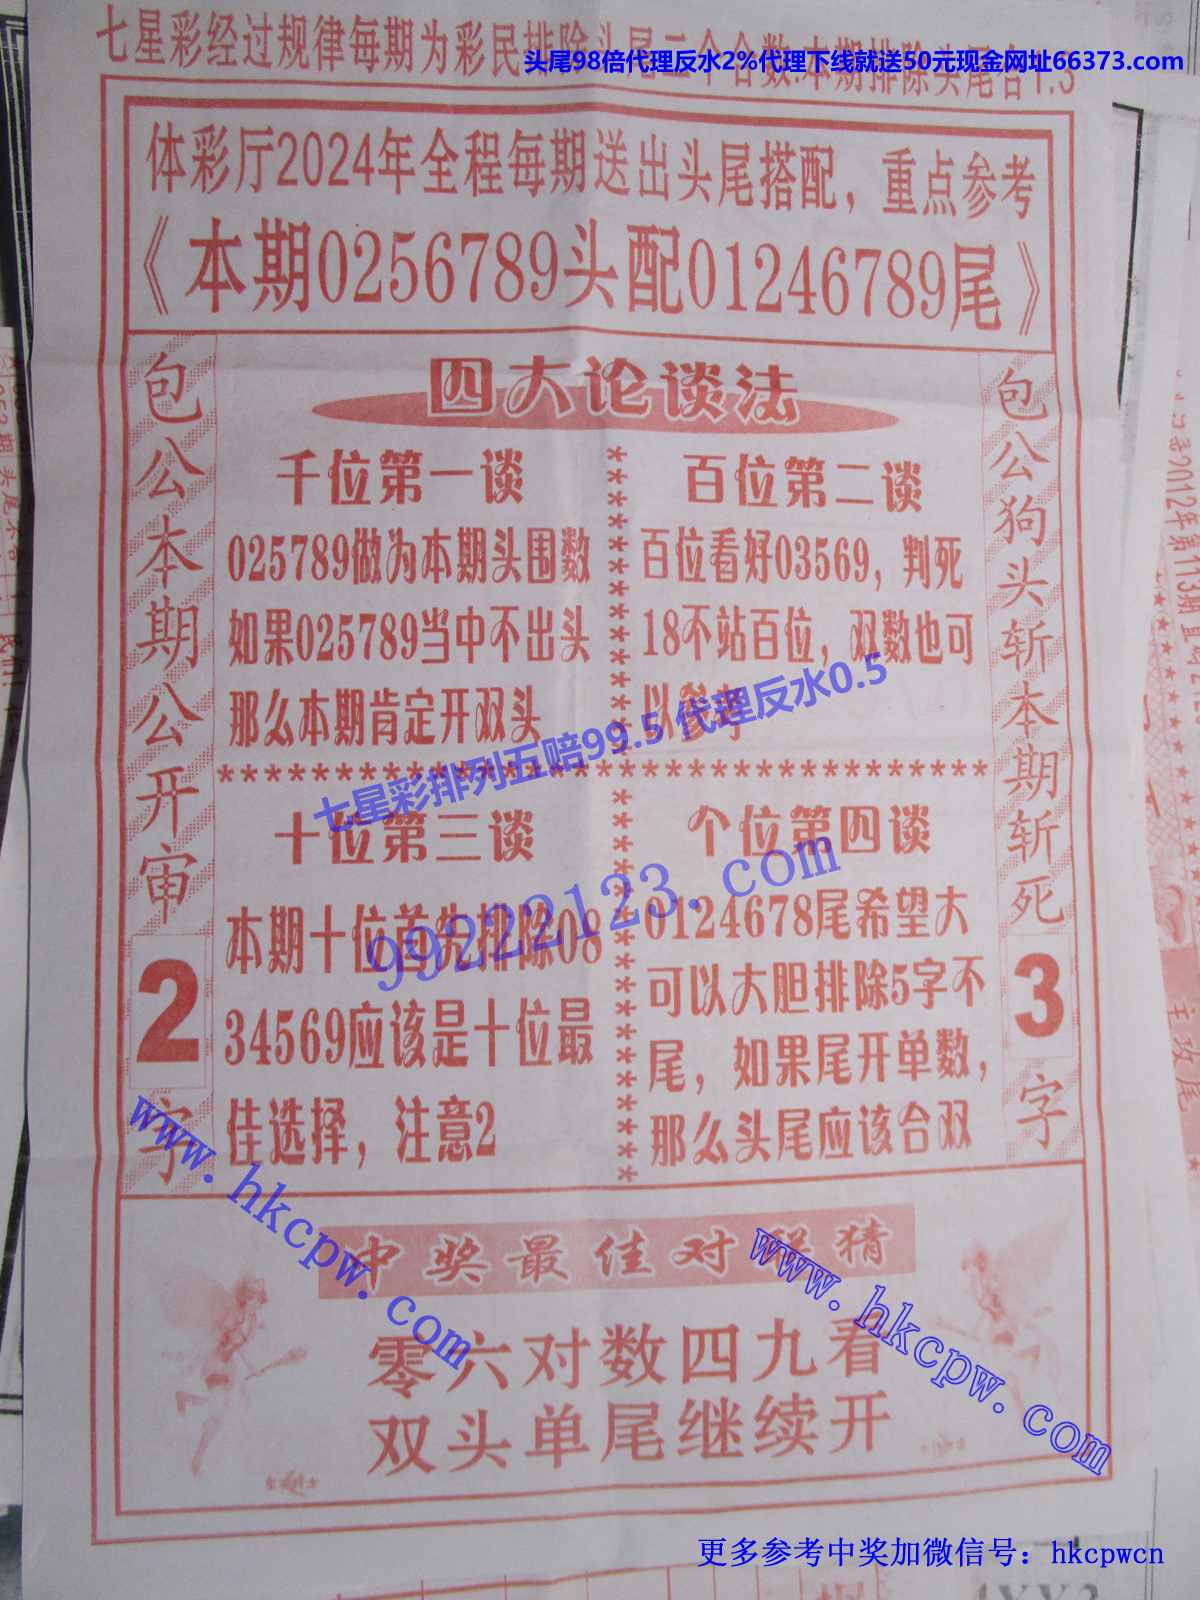 七星彩经过规律每期为彩民排除头尾二个合数:本期排除头尾合1.3
头尾98倍代理反水2%代理下线就送50元现金网址66373.com
体彩厅2024年全程每期送出头尾搭配，重点参考
《本期0256789头配01246789尾》
包公本期公开审
2
字
四大论谈法
千位第一谈
025789做为本期头围数
如果025789当中不出头
那么本期肯定开双头
百位第二谈
百位看好03569，判死
18不站百位，双数也可
以参考
七星彩排列五赔99.5 代理反水0.5
99222123.com
十位第三谈
本期十位首先排除08
34569应该是十位最
佳选择，注意2
个位第四谈
0124678尾希望大
可以大胆排除5字不
尾，如果尾开单数，
那么头尾应该合双
包公狗头斩本期斩死
3
字
www.hkcpw.com
www.hkcpw.com
中奖最佳对联猜
零六对数四九看
双头单尾继续开
更多参考中奖加微信号：hkcpwcn